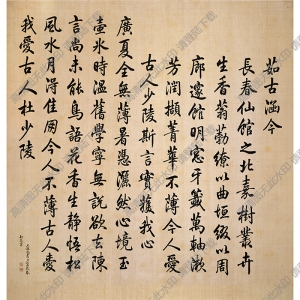 茹古涵今
長春仙館之北嘉樹叢卉
生香蓊葧繚以曲垣綴以周
廊邃館明窓牙籤萬軸漱
芳潤擷菁華不薄今人愛
古人少陵斯言實獲我心
廣夏全無薄暑憑灑然心境玉
壺冰時溫舊學寧無說欲去陳
言尚未能鳥語花香生靜悟松
風水月得佳朋今人不薄古人愛
我愛古人杜少陵